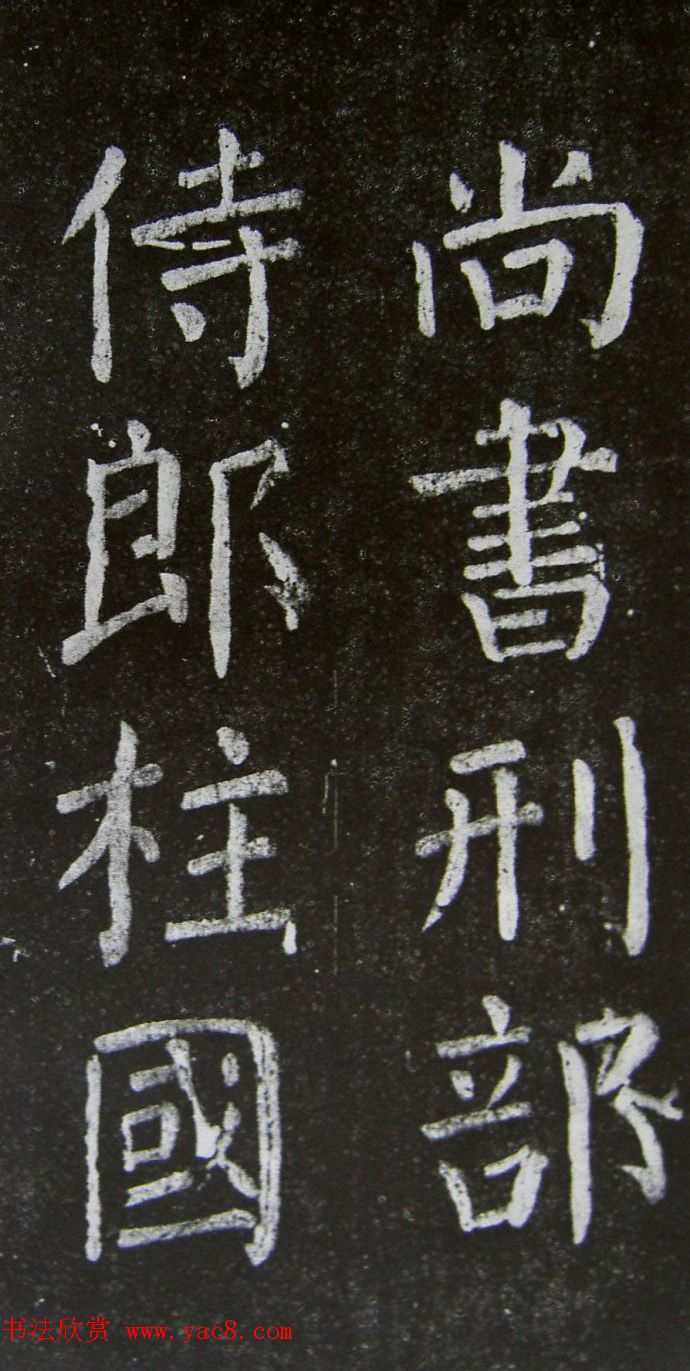 尚書刑部
侍郎柱國
书法欣赏 www.yac8.com